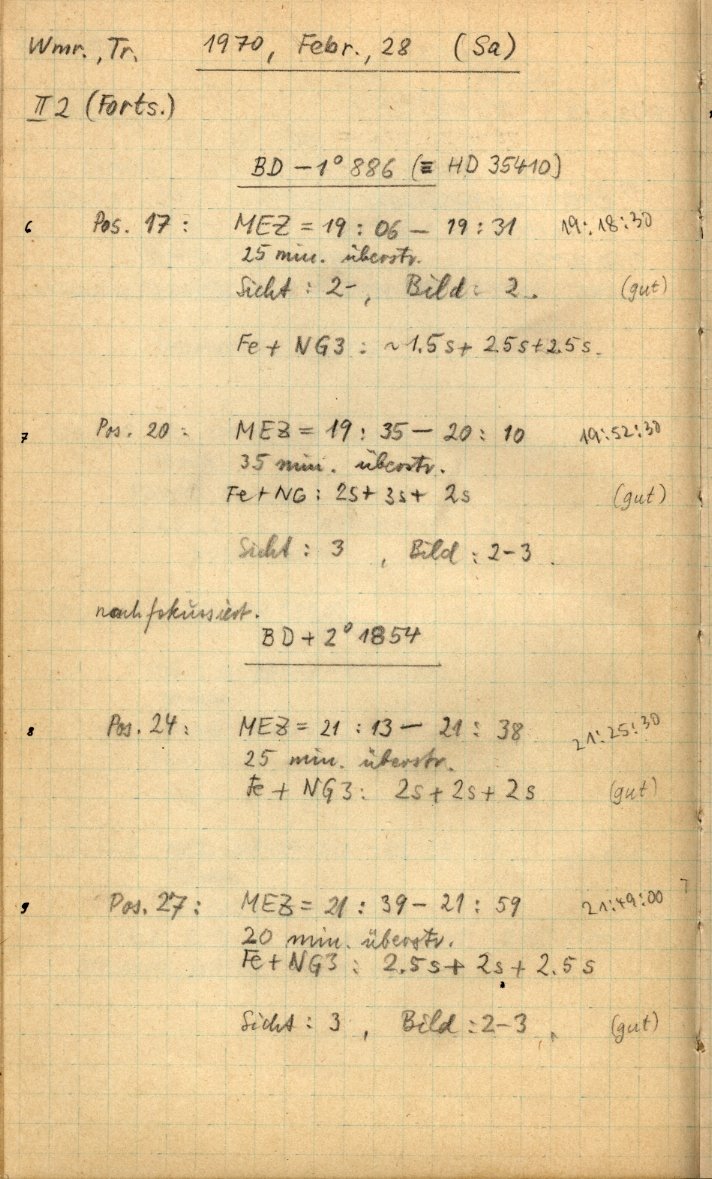 Wmr., Tr. 1970, Febr., 28 (Sa)
II 2 (Forts.)
BD -1° 886 (≡ HD 35410)
6 Pos. 17: MEZ = 19 : 06 — 19 : 31 19:18:30
25 min. überstr.
Sicht : 2-, Bild: 2. (gut)
Fe + NG3 : ~1.5s + 2.5s + 2.5s.
7 Pos. 20: MEZ = 19 : 35 — 20 : 10 19:52:30
35 min. überstr.
Fe + NG : 2s + 3s + 2s (gut)
Sicht : 3 , Bild : 2-3.
nachfokussiert.
BD + 2° 1854
8 Pos. 24: MEZ = 21 : 13 — 21 : 38 21:25:30
25 min. überstr.
Fe + NG3: 2s + 2s + 2s (gut)
9 Pos. 27: MEZ = 21 : 39 — 21 : 59 21:49:00
20 min. überstr.
Fe + NG3 : 2.5s + 2s + 2.5s
Sicht : 3 , Bild : 2-3, (gut)